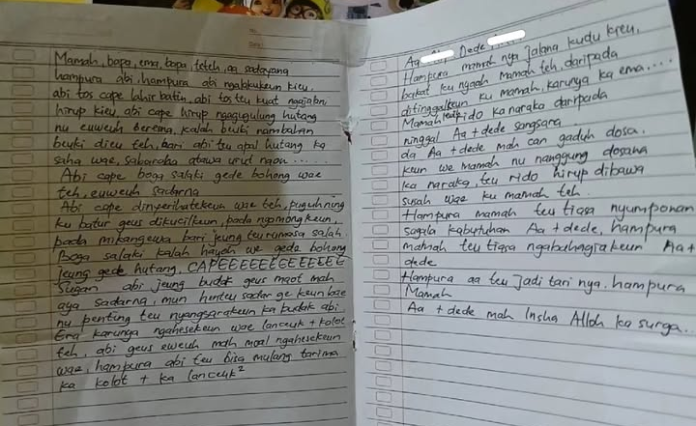 Mamah, bapa, ema, bapa, teteh, aa sadayana
hampura abi, hampura abi ngabukeun kieu
abi tos cape lahir batin, abi tos teu kuat ngajalni
hirup kieu abi cape hirup ngagugulung hutang
nu euweuh berena, kalah beuki nambahan
beuki dieu teh, bari abi teu apal hutang ka
saha wae, sabaraha atawa urut naon.....
Abi cape boga salaki gede bohong wae
teh, euweuh sadarna
Abi cape dinyerihatekeun wae teh, puguh ning
ku batur geus dikucilkeun, pada ngomongkeun,
pada mikangewa bari jeung teu rumasa salah.
Boga salaki kalah hayoh we gede bohong
jeung gede hutang, CAPEEEEEEEEEEEEE
Sugan abi jeung budak geus maot mah
aya sadarna, mun henteu sadar ge keun bae
nu penting teu nyangsarakeun ka budak abi
Era karunya ngahesekeun wae lanceuk + kolot
teh, abi geus euweuh mah moal ngahesekeun
wae, hampura abi teu bisa mulang tarima
ka kolot + ka lanceuk²
Aa Dede
Hampura mamah nya jalana kudu kieu,
bakat ku nyaah mamah teh daripada
ditinggalkeun ku mamah, karunya ka ema....
Mamah leuwih rido ka naraka daripada
ninggal Aa + dede sangsara
da Aa + dede mah can gaduh dosa,
keun we mamah nu nanggung dosana
ka naraka, teu rido hirup dibawa
susah wae ku mamah teh.
Hampura mamah teu tiasa nyumponan
sagala kabutuhan Aa + dede, hampura
mamah teu tiasa ngabahagiakeun Aa +
dede
Hampura aa teu jadi tari nya. hampura
Mamah
Aa + dede mah Insha Alloh ka surga...